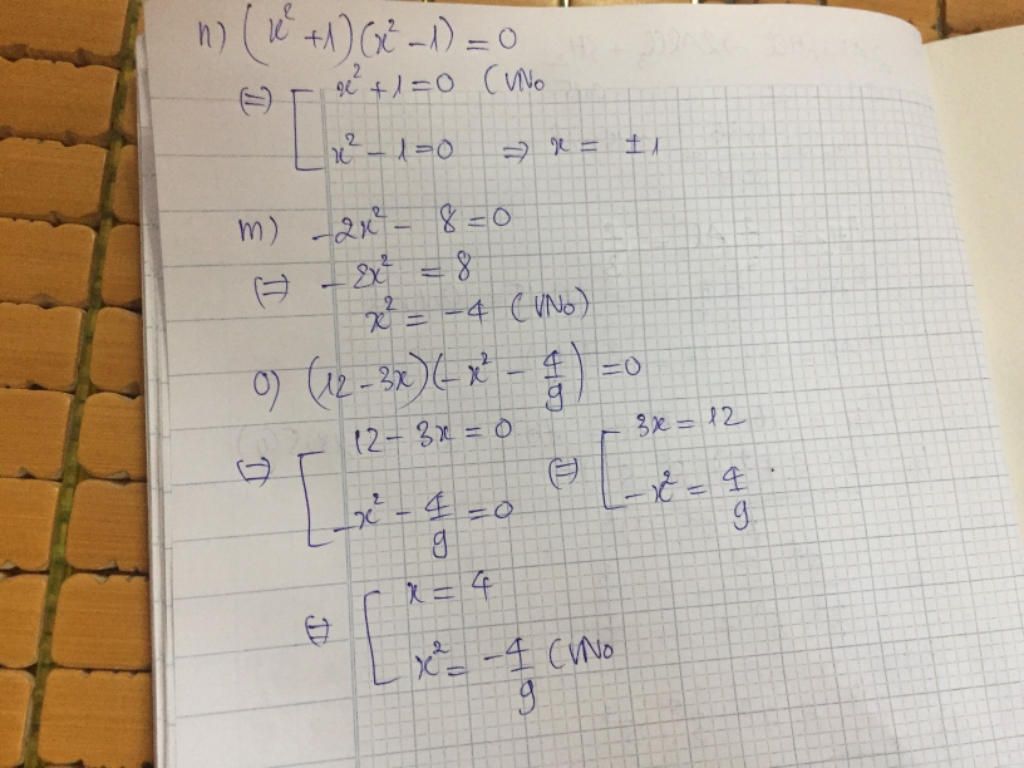 n) (x² + 1)(x² - 1) = 0
⇔ [ x² + 1 = 0 (VNo
x² - 1 = 0 ⇒ x = ±1
m) -2x² - 8 = 0
⇔ -2x² = 8
x² = -4 (VNo)
o) (12 - 3x)(-x² - 4/9) = 0
⇔ [ 12 - 3x = 0 ⇔ [ 3x = 12
-x² - 4/9 = 0 -x² = 4/9
⇔ [ x = 4
x² = -4/9 (VNo